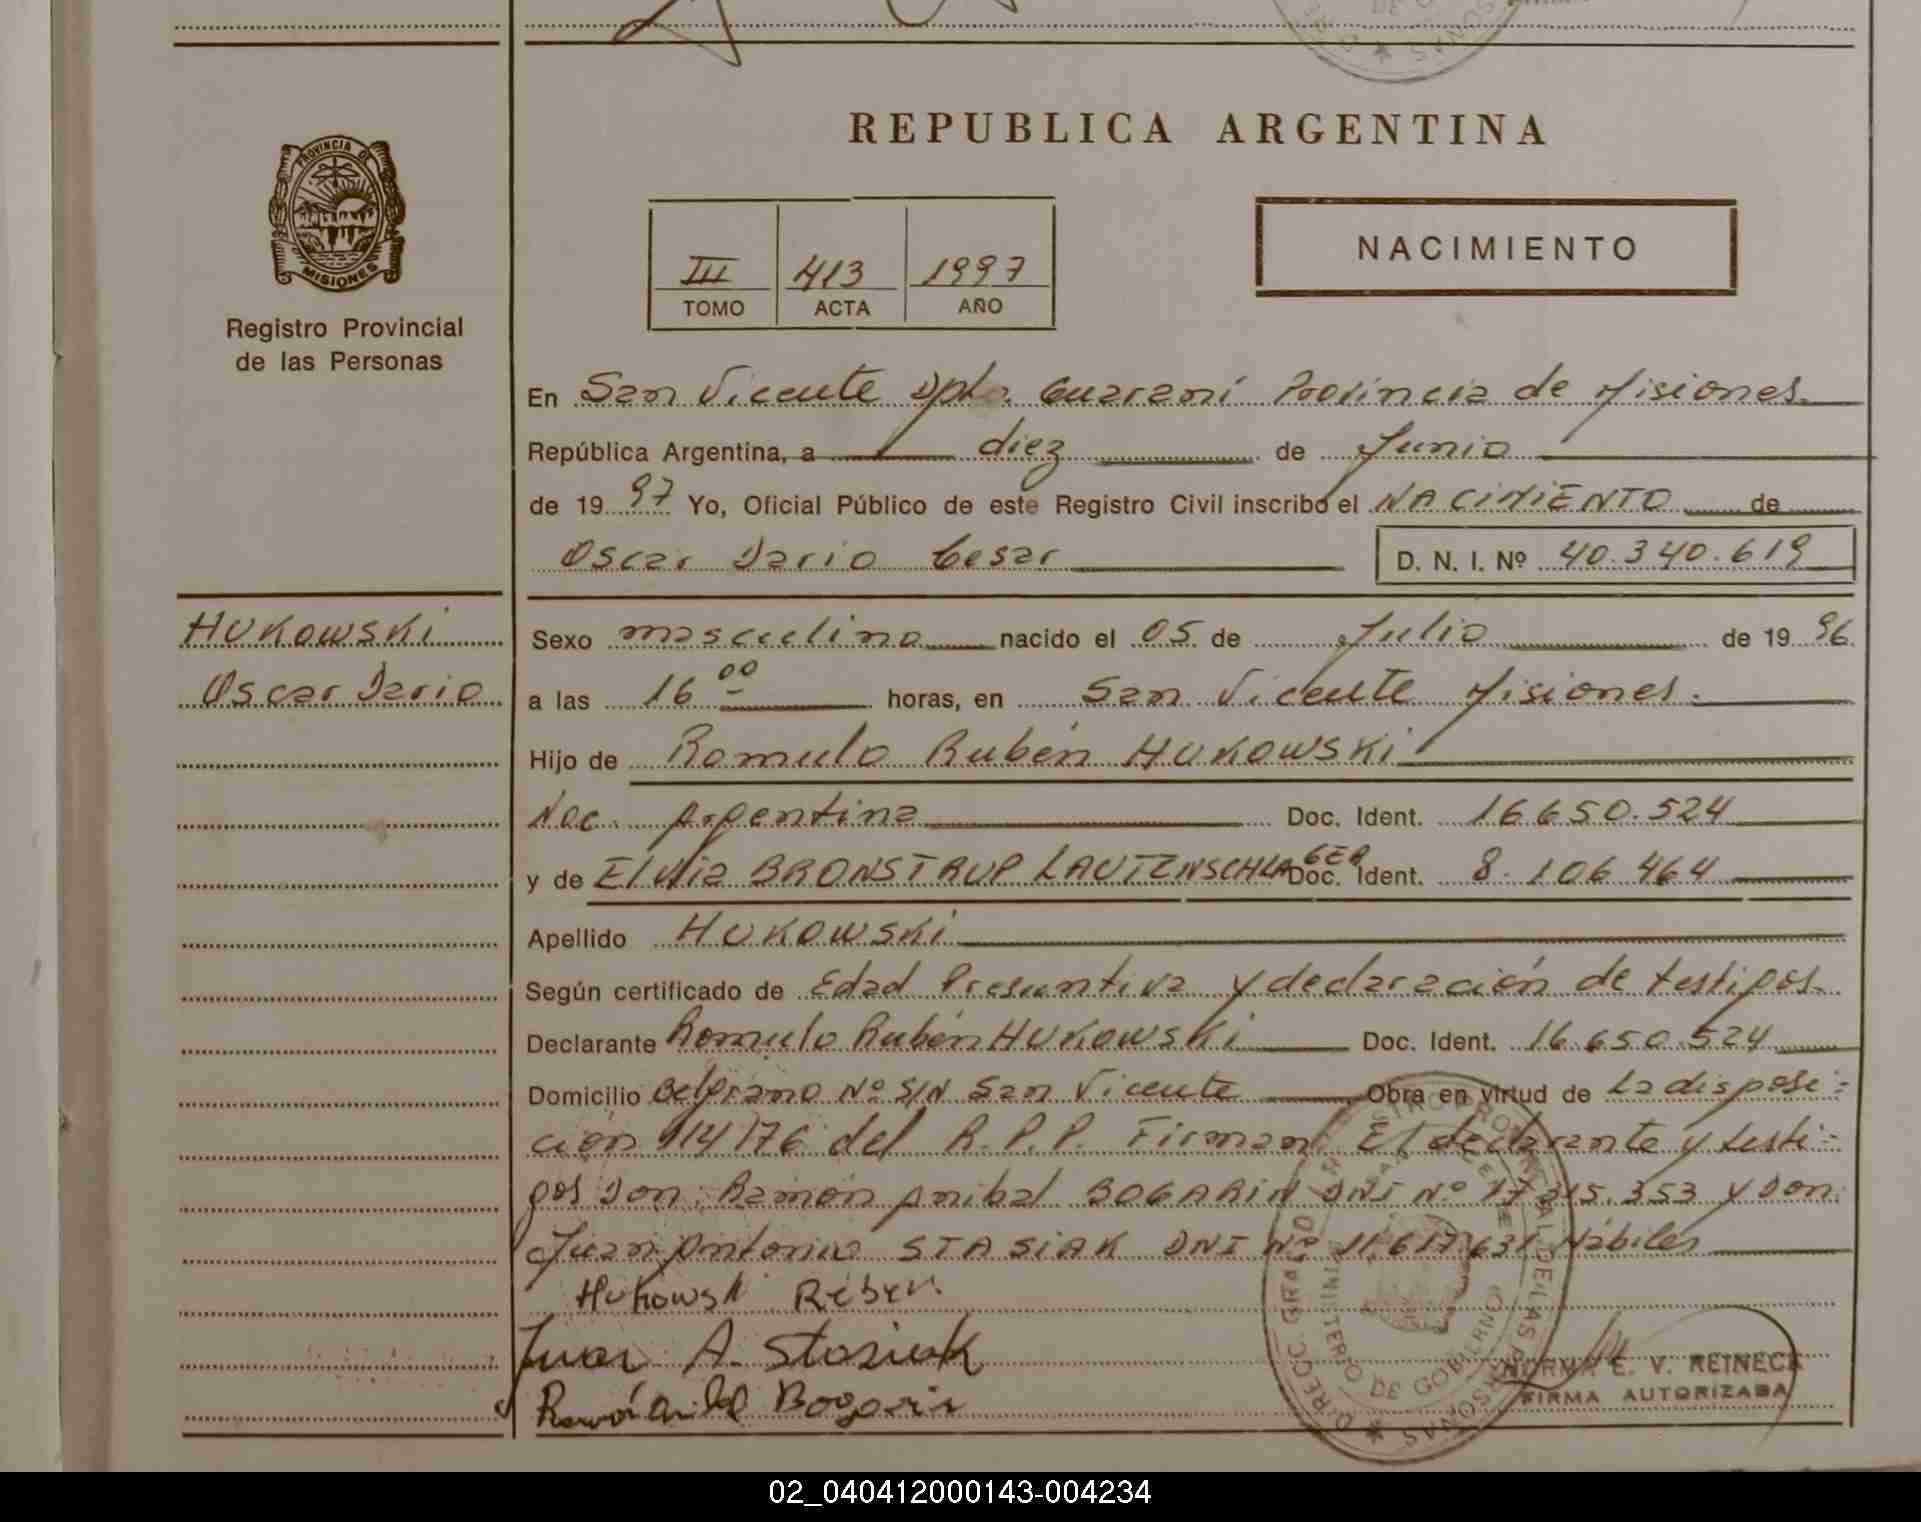 REPUBLICA ARGENTINA
PROVINCIA DE
MISIONES
Registro Provincial
de las Personas
III 413 1997
TOMO ACTA AÑO
NACIMIENTO
En San Vicente Dpto. Guaraní Provincia de Misiones.
República Argentina, a diez de Junio
de 1997 Yo, Oficial Público de este Registro Civil inscribo el NACIMIENTO de
Oscar Dario Cesar D. N. I. Nº 40.340.619
HUKOWSKI
Oscar Dario
Sexo masculino nacido el 05 de Julio de 1996
a las 16 00 horas, en San Vicente Misiones.
Hijo de Romulo Rubén HUKOWSKI
Nac. Argentina Doc. Ident. 16.650.524
y de Elvia BRONSTRUP LAUTENSCHLAGER Doc. Ident. 8.106.464
Apellido HUKOWSKI
Según certificado de Edad Presuntiva y declaración de testigos.
Declarante Romulo Rubén HUKOWSKI Doc. Ident. 16.650.524
Domicilio Belgrano Nº S/N San Vicente Obra en virtud de La disposi=
ción 914/76 del R.P.P. Firman El declarante y testi=
gos Don: Ramón Anibal BOGARIN DNI Nº 17.215.353 y Don:
Juan Antonio STASIAK DNI Nº 11.617.631 Hábiles
Hukowski
Juan A. Stasiak
Ramón Anibal Bogarin
DIRECC. GRAL. DEL REGISTRO PROVINCIAL DE LAS PERSONAS
MINISTERIO DE GOBIERNO
SAN VICENTE
NORMA E. V. REINECK
FIRMA AUTORIZADA
02_040412000143-004234